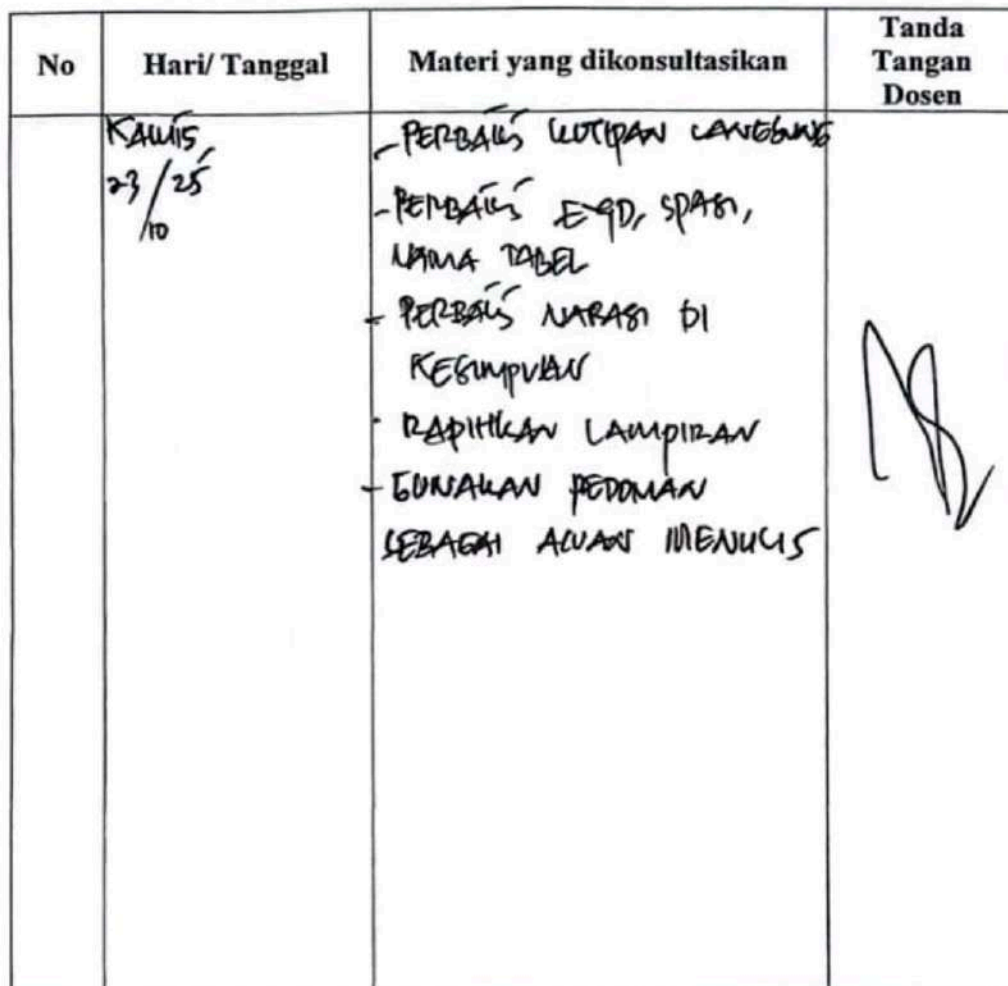 No
Hari/ Tanggal
Materi yang dikonsultasikan
Tanda
Tangan
Dosen
KAMIS
23/25
/10
- PERBAIKI KUTIPAN LANGSUNG
- PERBAIKI EYD, SPASI,
NAMA TABEL
- PERBAIKI NARASI DI
KESIMPULAN
- RAPIHKAN LAMPIRAN
- GUNAKAN PEDOMAN
SEBAGAI ACUAN MENULIS